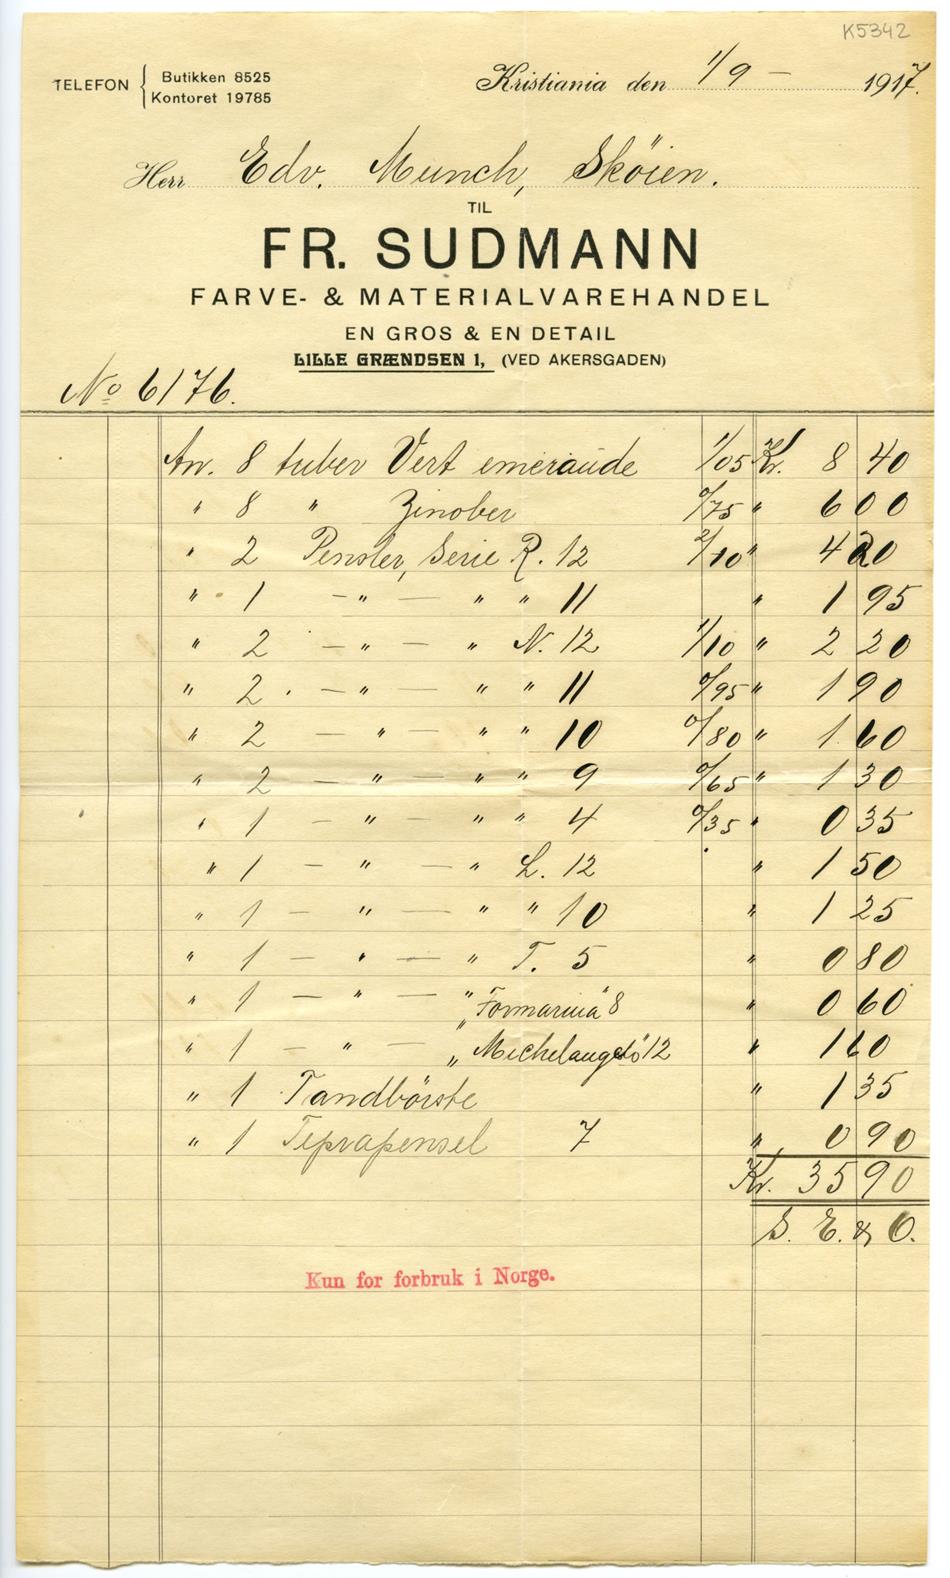 K5342
TELEFON { Butikken 8525
Kontoret 19785
Kristiania den 1/9 — 1917.
Herr Edv. Munch, Sköien.
TIL
FR. SUDMANN
FARVE- & MATERIALVAREHANDEL
EN GROS & EN DETAIL
LILLE GRÆNDSEN 1, (VED AKERSGADEN)
No 6176.
An. 8 tuber Vert emeraude 1/05 Kr. 8 40
" 8 " Zinober 0/75 " 6 00
" 2 Pensler, Serie R. 12 2/10 " 4 20
" 1 — " — " " 11 " 1 95
" 2 — " — " N. 12 1/10 " 2 20
" 2 — " — " " 11 0/95 " 1 90
" 2 — " — " " 10 0/80 " 1 60
" 2 — " — " " 9 0/65 " 1 30
" 1 — " — " " 4 0/35 " 0 35
" 1 — " — " L. 12 " 1 50
" 1 — " — " " 10 " 1 25
" 1 — " — " T. 5 " 0 80
" 1 — " — " „Formarina" 8 " 0 60
" 1 — " — „Michelangelo" 12 " 1 60
" 1 Tandbörste " 1 35
" 1 Teprapensel 7 " 0 90
Kr. 35 90
S. E. & O.
Kun for forbruk i Norge.